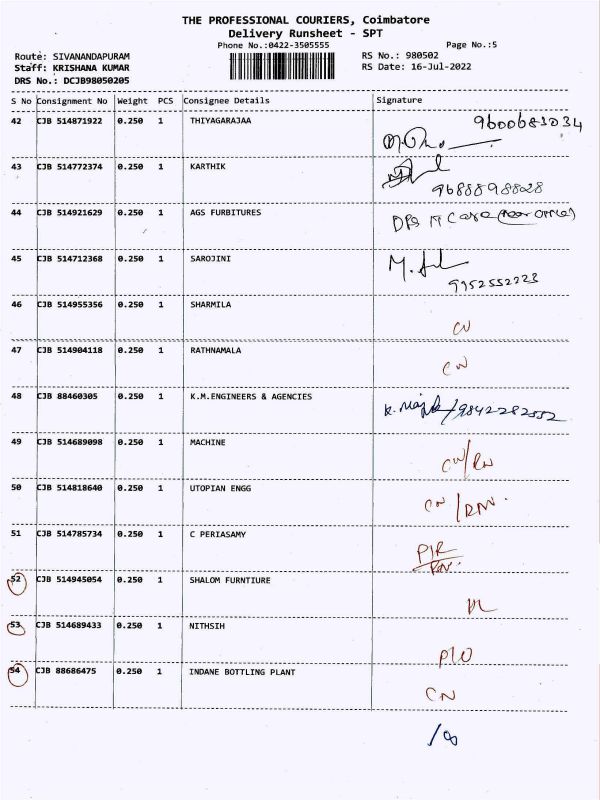 THE PROFESSIONAL COURIERS, Coimbatore
Delivery Runsheet - SPT
Phone No.:0422-3505555 Page No.:5
Route: SIVANANDAPURAM RS No.: 980502
Staff: KRISHANA KUMAR RS Date: 16-Jul-2022
DRS No.: DCJB98050205
S No Consignment No Weight PCS Consignee Details Signature
42 CJB 514871922 0.250 1 THIYAGARAJAA 9600683034
43 CJB 514772374 0.250 1 KARTHIK
9688898828
44 CJB 514921629 0.250 1 AGS FURBITURES
45 CJB 514712368 0.250 1 SAROJINI
9952552223
46 CJB 514955356 0.250 1 SHARMILA
CN
47 CJB 514904118 0.250 1 RATHNAMALA
CN
48 CJB 88460305 0.250 1 K.M.ENGINEERS & AGENCIES
9842282552
49 CJB 514689098 0.250 1 MACHINE
CN/RN
50 CJB 514818640 0.250 1 UTOPIAN ENGG
CN/RN.
51 CJB 514785734 0.250 1 C PERIASAMY
52 CJB 514945054 0.250 1 SHALOM FURNTIURE
DL
53 CJB 514689433 0.250 1 NITHSIH
54 CJB 88686475 0.250 1 INDANE BOTTLING PLANT
CN